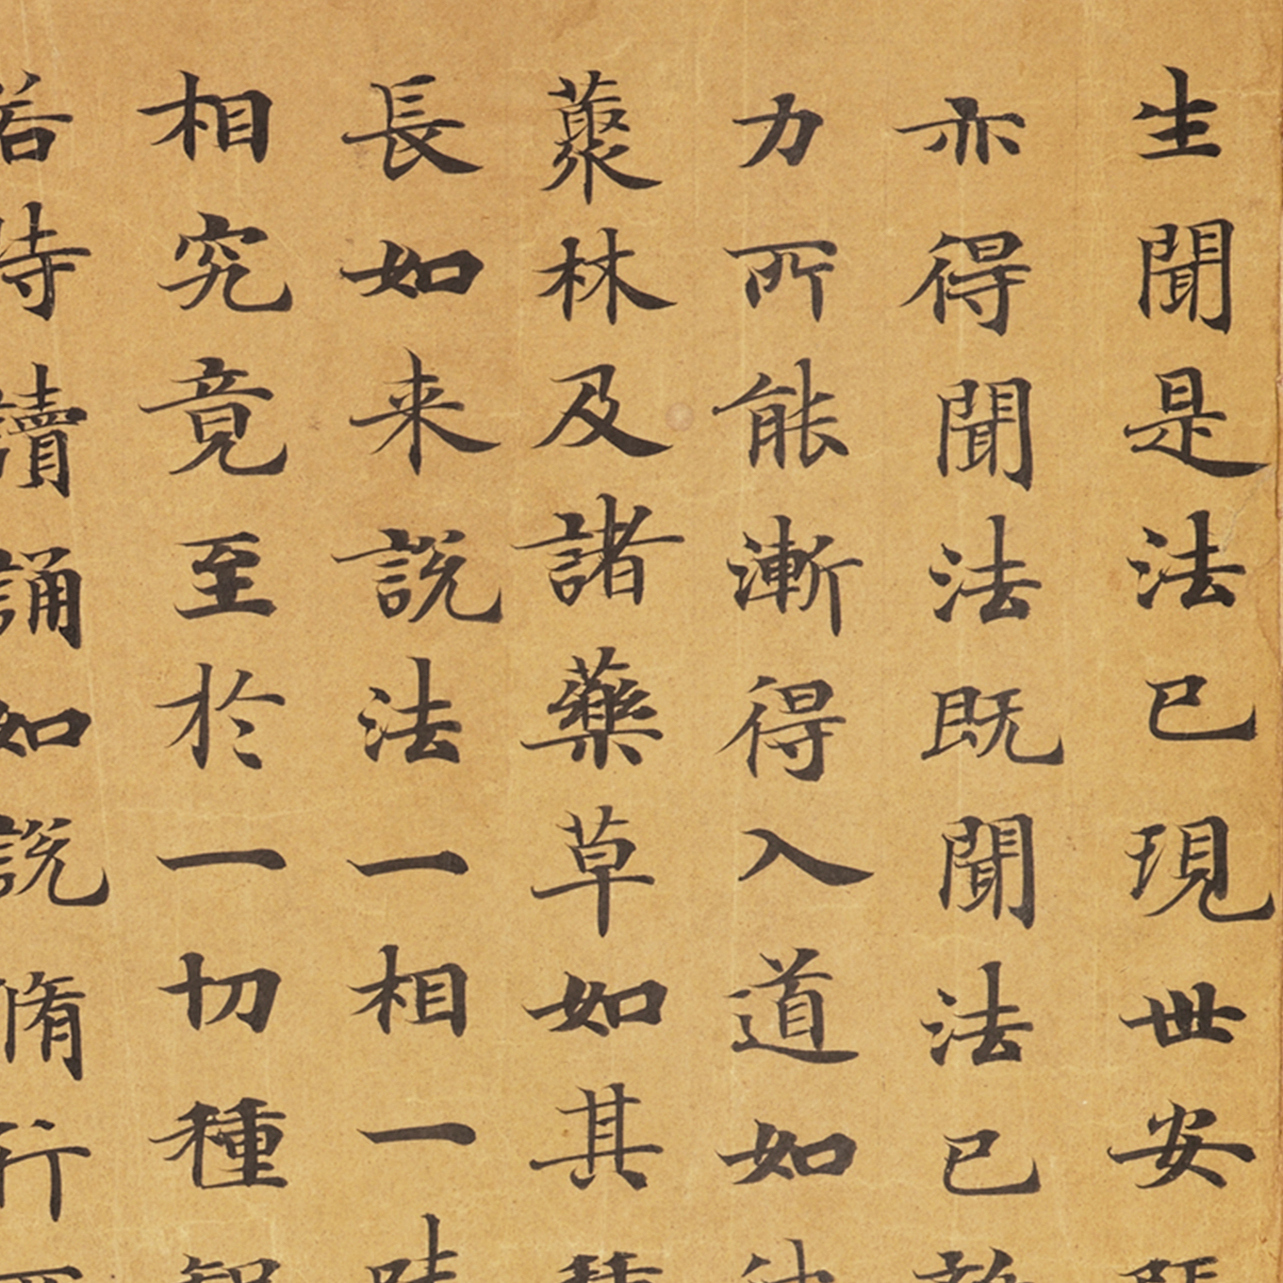 生聞是法已現世安
亦得聞法既聞法已
力所能漸得入道如
藂林及諸藥草如其
長如来說法一相一味
相究竟至於一切種
若持讀誦如說脩行